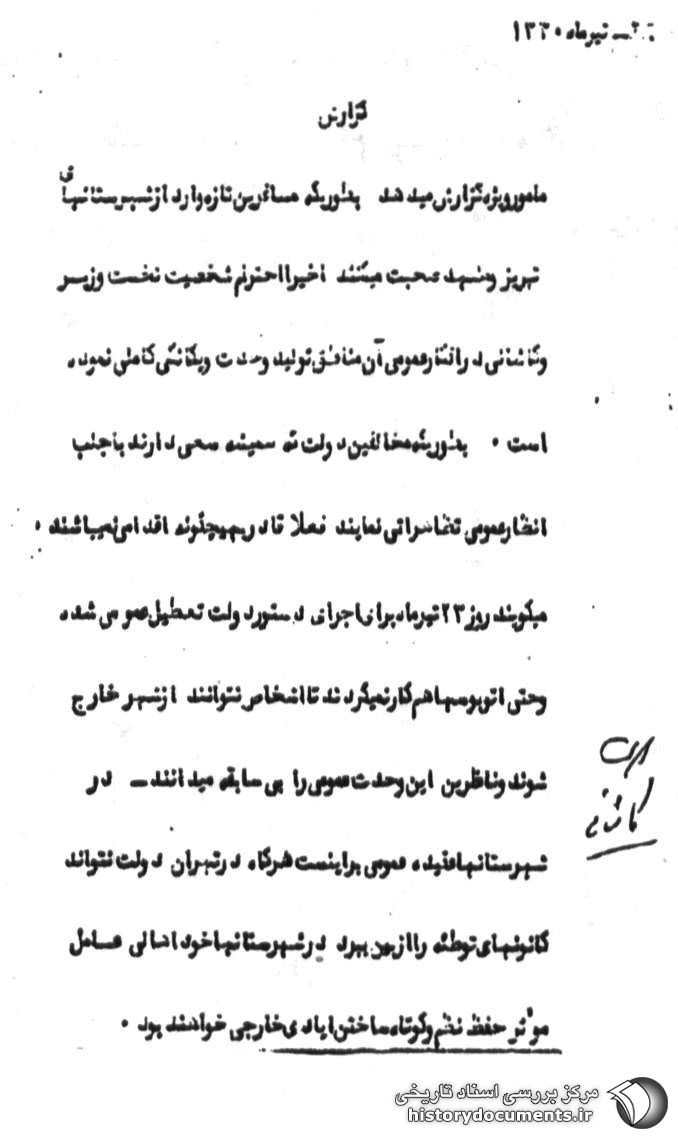 تیرماه ۱۳۳۰
گزارش
مامور ویژه گزارش میدهد بطوریکه مسافرین تازه وارد از شهرستانهای
تبریز و مشهد صحبت میکنند اخیرا احترام شخصیت نخست وزیر
و کاشانی در افکار عمومی آن مناطق تولید وحدت و یگانگی کاملی نموده
است . بطوریکه مخالفین دولت که همیشه سعی دارند با جلب
انظار عمومی تظاهراتی نمایند فعلا قادر بهیچگونه اقدامی نمیباشند .
میگویند روز ۲۳ تیرماه برای اجرای دستور دولت تعطیل عمومی شده
وحتی اتوبوسها هم کار نمیکردند تا اشخاص نتوانند از شهر خارج
شوند و ناظرین این وحدت عمومی را بی سابقه میدانند ـ در
شهرستانها عقیده عمومی براینست هرگاه در تهران دولت نتواند
کانونهای توطئه را از بین ببرد در شهرستانها خود اهالی عامل
موثر حفظ نظم و کوتاه ساختن ایادی خارجی خواهند بود .
کاشانی
مرکز بررسی اسناد تاریخی
historydocuments.ir